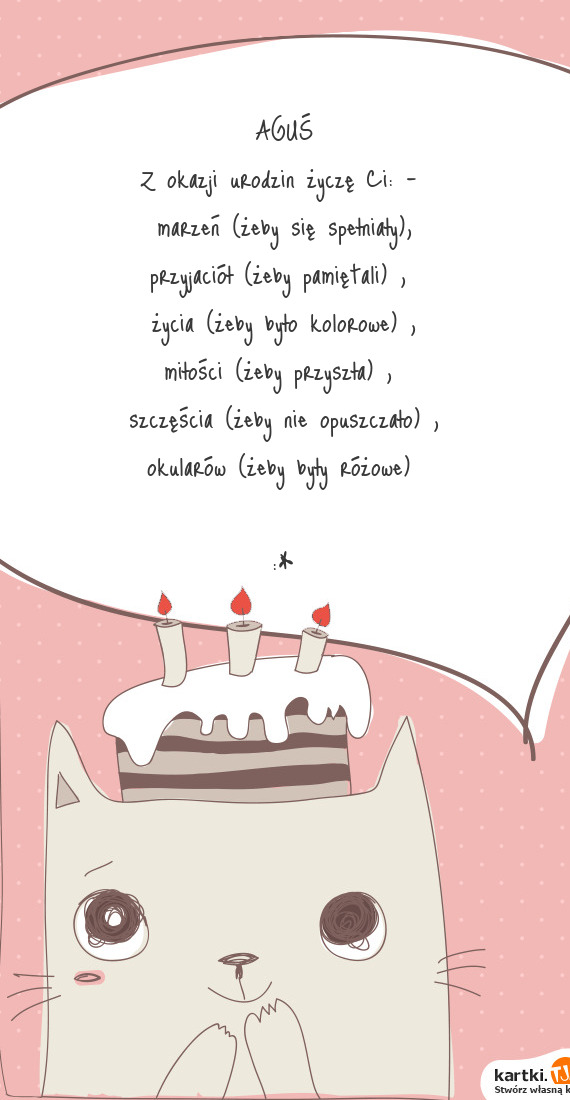 AGUŚ
Z okazji urodzin życzę Ci: -
marzeń (żeby się spełniały),
przyjaciół (żeby pamiętali) ,
życia (żeby było kolorowe) ,
miłości (żeby przyszła) ,
szczęścia (żeby nie opuszczało) ,
okularów (żeby były różowe)
:*
kartki.TJ
Stwórz własną k